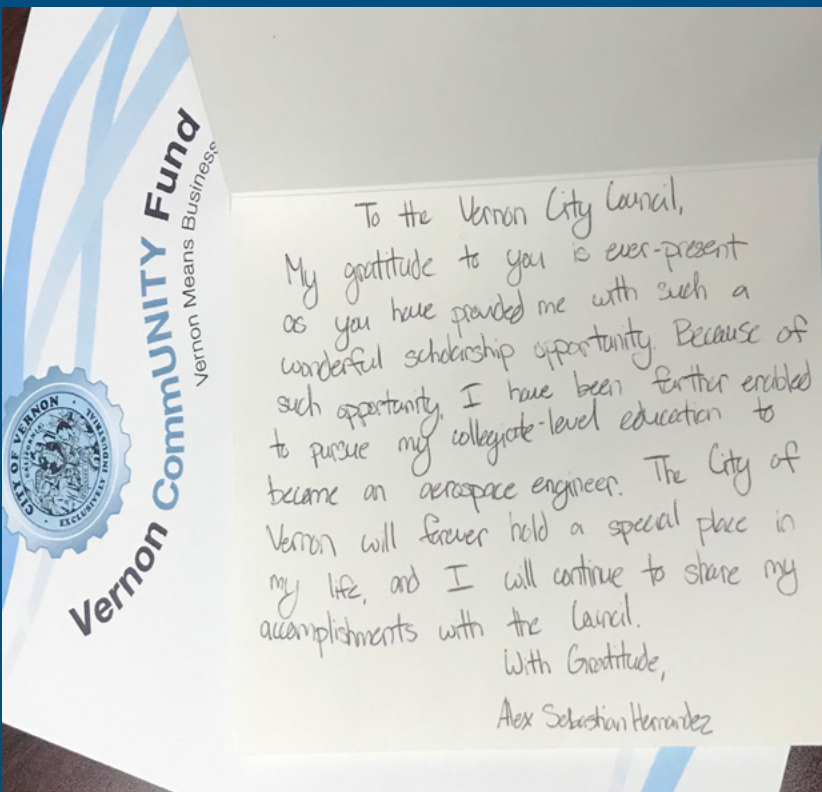 Vernon CommUNITY Fund
Vernon Means Business
CITY OF VERNON
CALIFORNIA
EXCLUSIVELY INDUSTRIAL
To the Vernon City Council,
My gratitude to you is ever-present
as you have provided me with such a
wonderful scholarship opportunity. Because of
such opportunity, I have been further enabled
to pursue my collegiate-level education to
become an aerospace engineer. The City of
Vernon will forever hold a special place in
my life, and I will continue to share my
accomplishments with the Council.
With Gratitude,
Alex Sebastian Hernandez